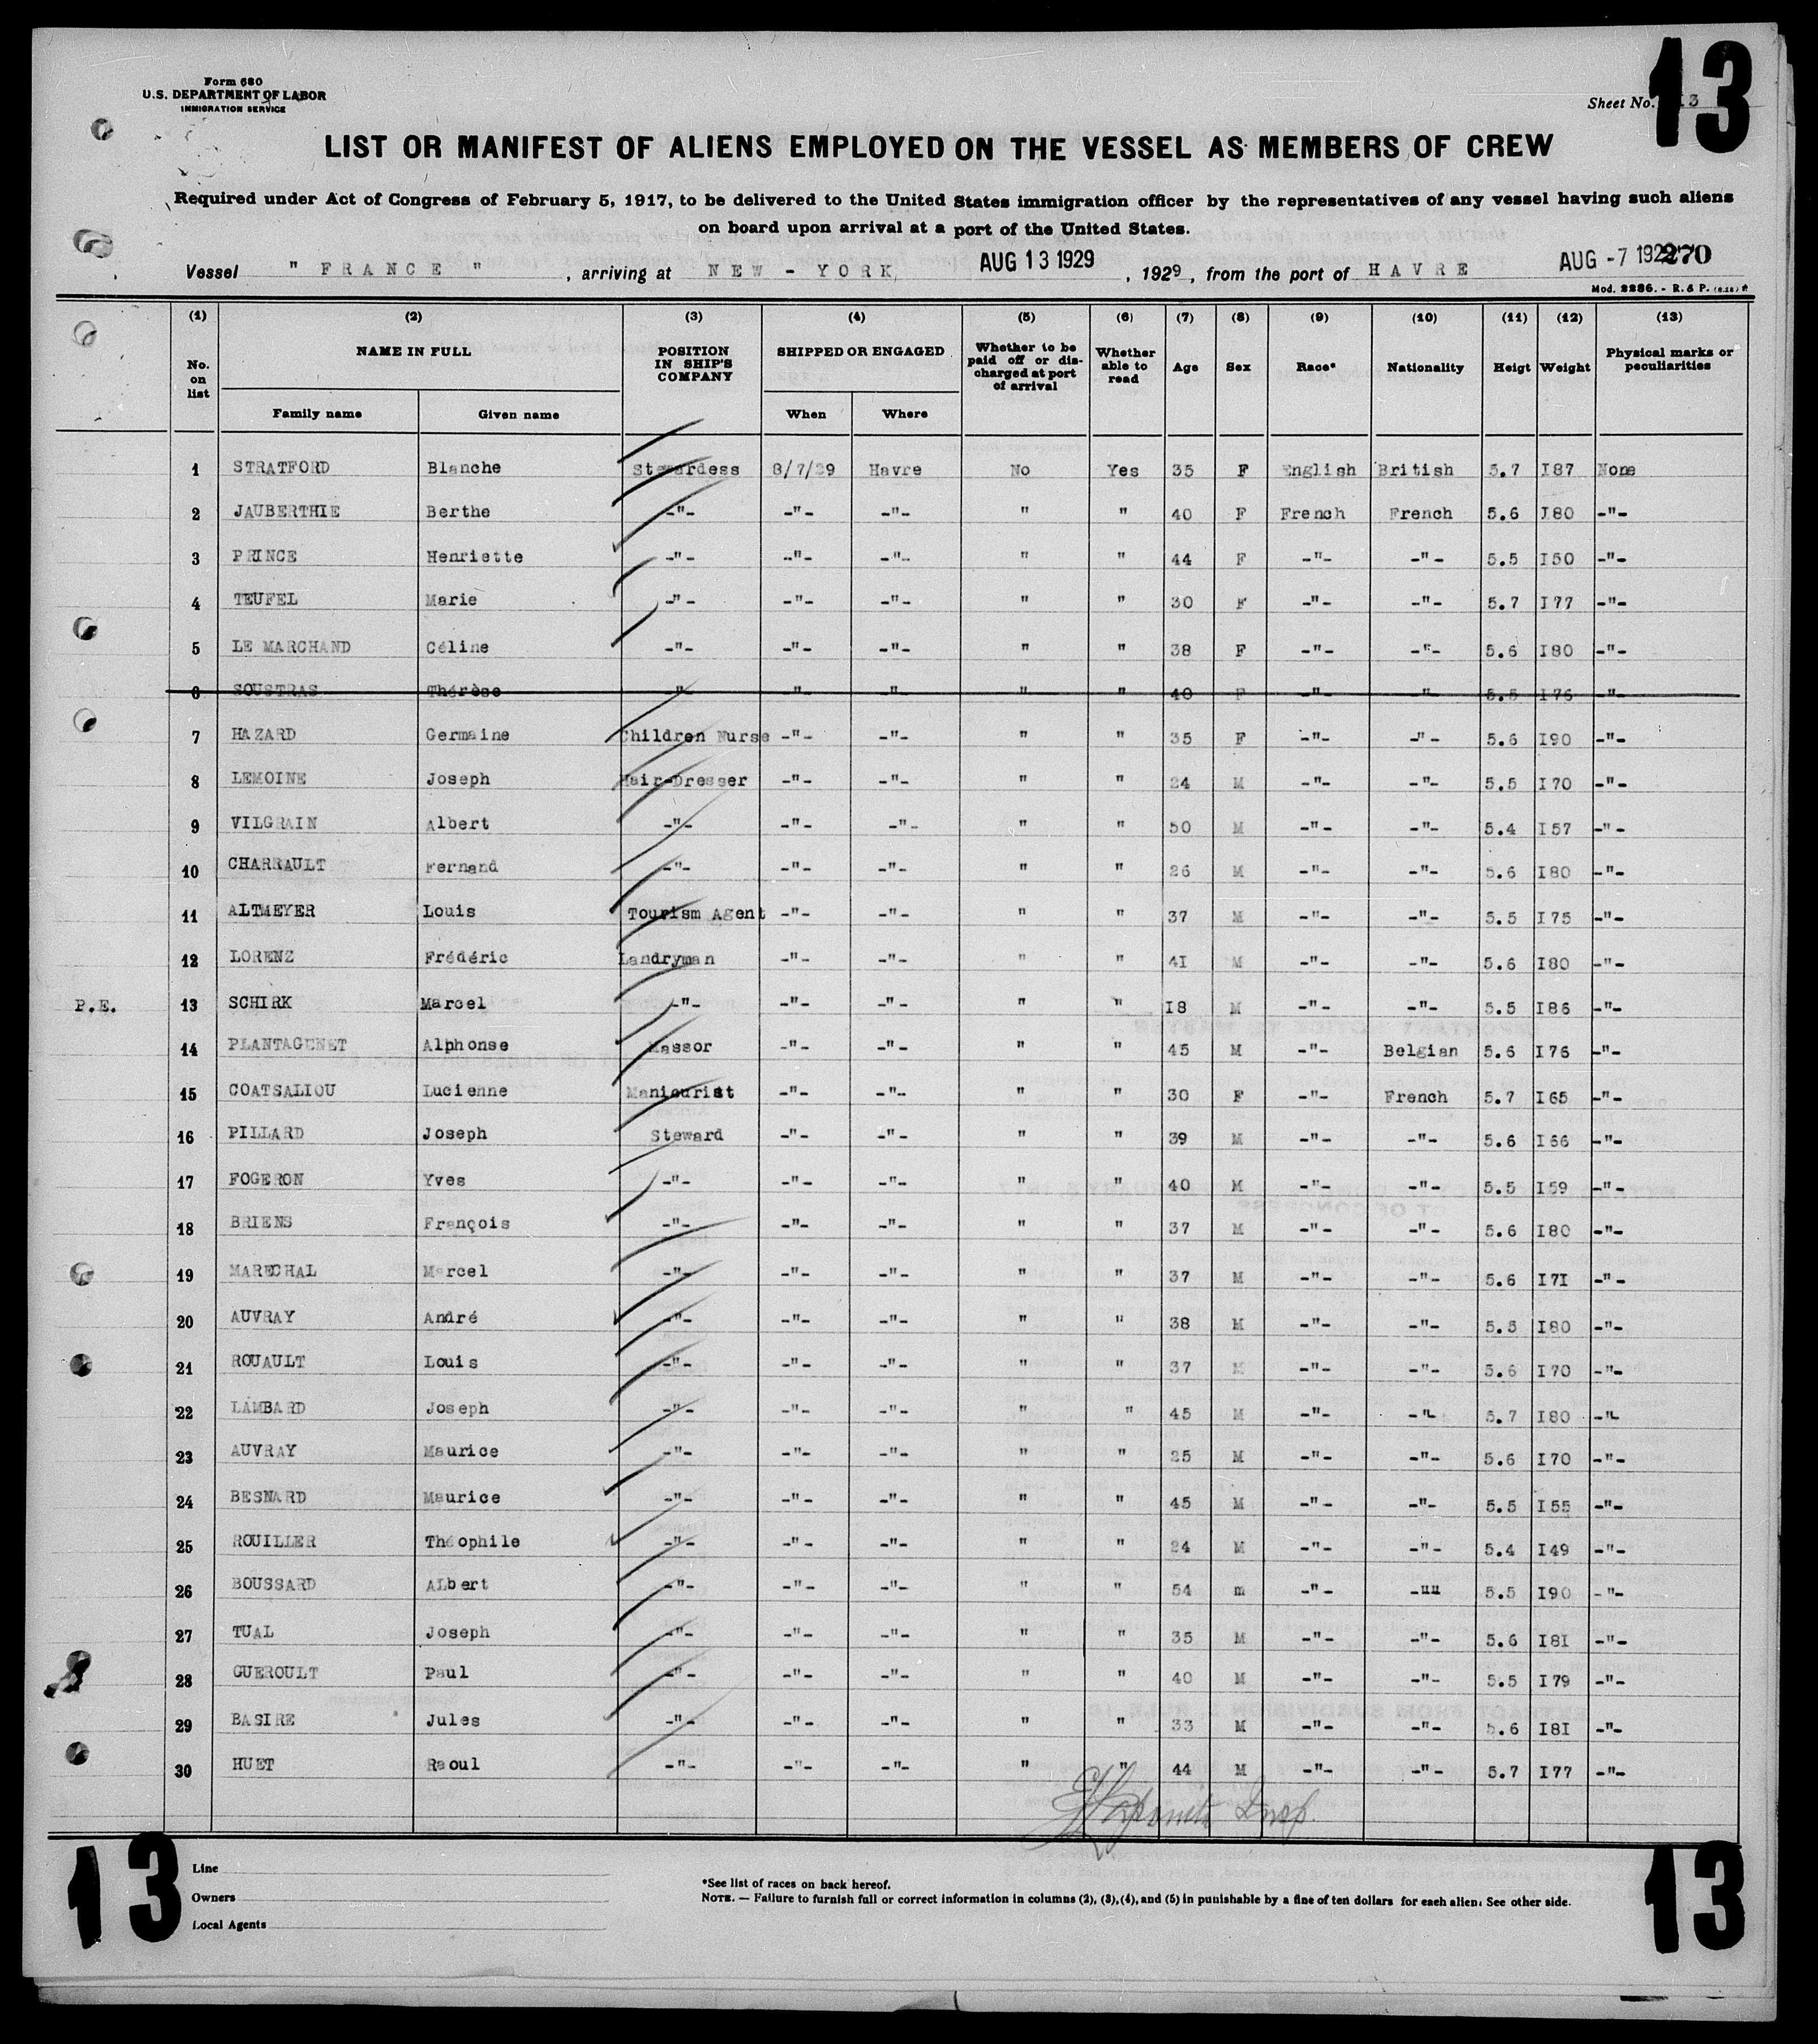 13
Form 680
U.S. DEPARTMENT OF LABOR
IMMIGRATION SERVICE
Sheet No. 13
LIST OR MANIFEST OF ALIENS EMPLOYED ON THE VESSEL AS MEMBERS OF CREW
Required under Act of Congress of February 5, 1917, to be delivered to the United States immigration officer by the representatives of any vessel having such aliens
on board upon arrival at a port of the United States.
Vessel " FRANCE ", arriving at NEW - YORK AUG 13 1929, 1929, from the port of HAVRE AUG -7 1929 270
Mod. 2286. - R. & P.
(1) (2) (3) (4) (5) (6) (7) (8) (9) (10) (11) (12) (13)
No. on list NAME IN FULL POSITION IN SHIP'S COMPANY SHIPPED OR ENGAGED Whether to be paid off or discharged at port of arrival Whether able to read Age Sex Race* Nationality Heigt Weight Physical marks or peculiarities
Family name Given name When Where
1 STRATFORD Blanche Stewardess 8/7/29 Havre No Yes 35 F English British 5.7 I87 None
2 JAUBERTHIE Berthe -"- -"- -"- " " 40 F French French 5.6 I80 -"-
3 PRINCE Henriette -"- -"- -"- " " 44 F -"- -"- 5.5 I50 -"-
4 TEUFEL Marie -"- -"- -"- " " 30 F -"- -"- 5.7 I77 -"-
5 LE MARCHAND Céline -"- -"- -"- " " 38 F -"- -"- 5.6 I80 -"-
6 SOUSTRAS Thérèse -"- -"- -"- " " 40 F -"- -"- 5.5 I76 -"-
7 HAZARD Germaine Children Nurse -"- -"- " " 35 F -"- -"- 5.6 I90 -"-
8 LEMOINE Joseph Hair-Dresser -"- -"- " " 24 M -"- -"- 5.5 I70 -"-
9 VILGRAIN Albert -"- -"- -"- " " 50 M -"- -"- 5.4 I57 -"-
10 CHARRAULT Fernand -"- -"- -"- " " 26 M -"- -"- 5.6 I80 -"-
11 ALTMEYER Louis Tourism Agent -"- -"- " " 37 M -"- -"- 5.5 I75 -"-
12 LORENZ Frédéric Landryman -"- -"- " " 4I M -"- -"- 5.6 I80 -"-
P.E. 13 SCHIRK Marcel -"- -"- -"- " " I8 M -"- -"- 5.5 I86 -"-
14 PLANTAGENET Alphonse Massor -"- -"- " " 45 M -"- Belgian 5.6 I76 -"-
15 COATSALIOU Lucienne Manicurist -"- -"- " " 30 F -"- French 5.7 I65 -"-
16 PILLARD Joseph Steward -"- -"- " " 39 M -"- -"- 5.6 I66 -"-
17 FOGERON Yves -"- -"- -"- " " 40 M -"- -"- 5.5 I59 -"-
18 BRIENS François -"- -"- -"- " " 37 M -"- -"- 5.6 I80 -"-
19 MARECHAL Marcel -"- -"- -"- " " 37 M -"- -"- 5.6 I7I -"-
20 AUVRAY André -"- -"- -"- " " 38 M -"- -"- 5.5 I80 -"-
21 ROUAULT Louis -"- -"- -"- " " 37 M -"- -"- 5.6 I70 -"-
22 LAMBARD Joseph -"- -"- -"- " " 45 M -"- -"- 5.7 I80 -"-
23 AUVRAY Maurice -"- -"- -"- " " 25 M -"- -"- 5.6 I70 -"-
24 BESNARD Maurice -"- -"- -"- " " 45 M -"- -"- 5.5 I55 -"-
25 ROUILLER Théophile -"- -"- -"- " " 24 M -"- -"- 5.4 I49 -"-
26 BOUSSARD ALbert -"- -"- -"- " " 54 m -"- -"" 5.5 I90 -"-
27 TUAL Joseph -"- -"- -"- " " 35 M -"- -"- 5.6 I8I -"-
28 GUEROULT Paul -"- -"- -"- " " 40 M -"- -"- 5.5 I79 -"-
29 BASIRE Jules -"- -"- -"- " " 33 M -"- -"- 5.6 I8I -"-
30 HUET Raoul -"- -"- -"- " " 44 M -"- -"- 5.7 I77 -"-
Insp.
13
13
Line
Owners
Local Agents
*See list of races on back hereof.
NOTE. — Failure to furnish full or correct information in columns (2), (3), (4), and (5) in punishable by a fine of ten dollars for each alien. See other side.